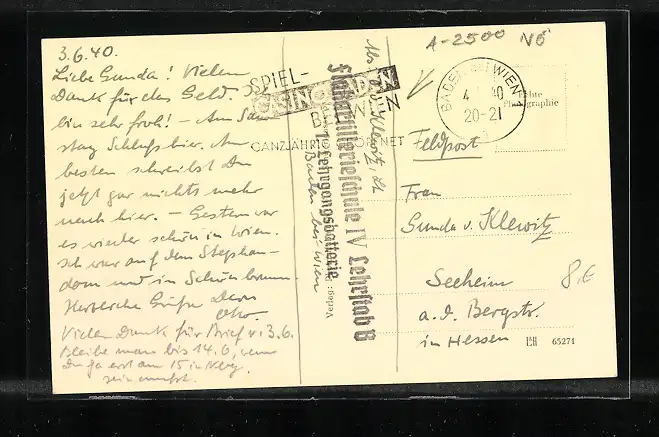 3.6.40.
Liebe Gunda! Vielen
Dank für das Geld.
bin sehr froh! – Am Sams
tag Schluss hier. Am
besten schreibst Du
jetzt gar nichts mehr
nach hier. – Gestern war
es wieder schön in Wien.
Ich war auf dem Stephans-
dom und in Schönbrunn
Herzliche Grüße Dein
Otto.
Vielen Dank für Brief v. 3.6.
Bleibe man bis 14.6, wenn
Du ja erst am 15 in
sein musst.
SPIEL-
CASINO BADEN
BEI WIEN
GANZJÄHRIG GEÖFFNET
v. Klewitz,
Flakartillerieschule IV Lehrstab B
Lehrgangsbatterie
Baden bei Wien
Verlag:
A-2500 NÖ
BADEN bei WIEN
40
20-21
Echte
Photographie
Feldpost
Frau
Gunda v. Klewitz
Seeheim
a. d. Bergstr.
in Hessen
8,€
65271